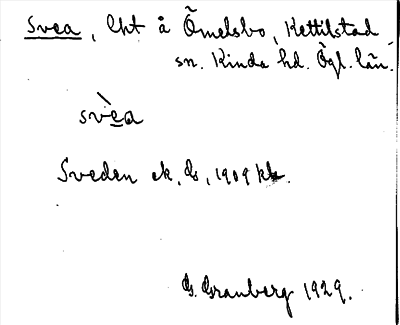 Svea, lht å Ömelsbo, Kettilstad
sn. Kinda hd. Ögl. län.
svèa
Sveden ek. G, 1909
G. Granberg 1929.